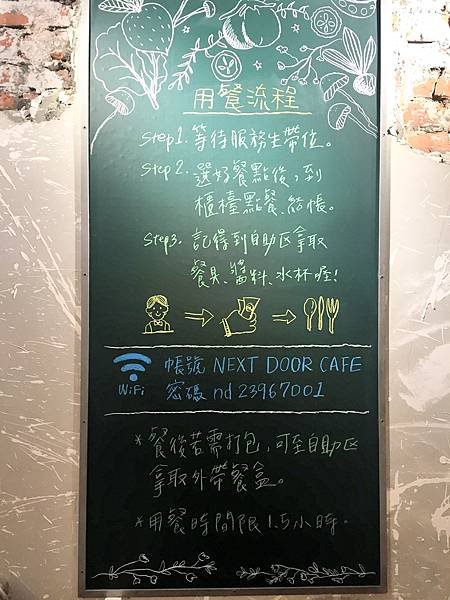 用餐流程
Step1. 等待服務生帶位。
Step2. 選好餐點後，到
櫃檯點餐、結帳。
Step3. 記得到自助区拿取
餐具、醬料、水杯喔！
WiFi
帳號 NEXT DOOR CAFE
密碼 nd 23967001
*餐後若需打包，可至自助区
拿取外帶餐盒。
*用餐時間限1.5小時。